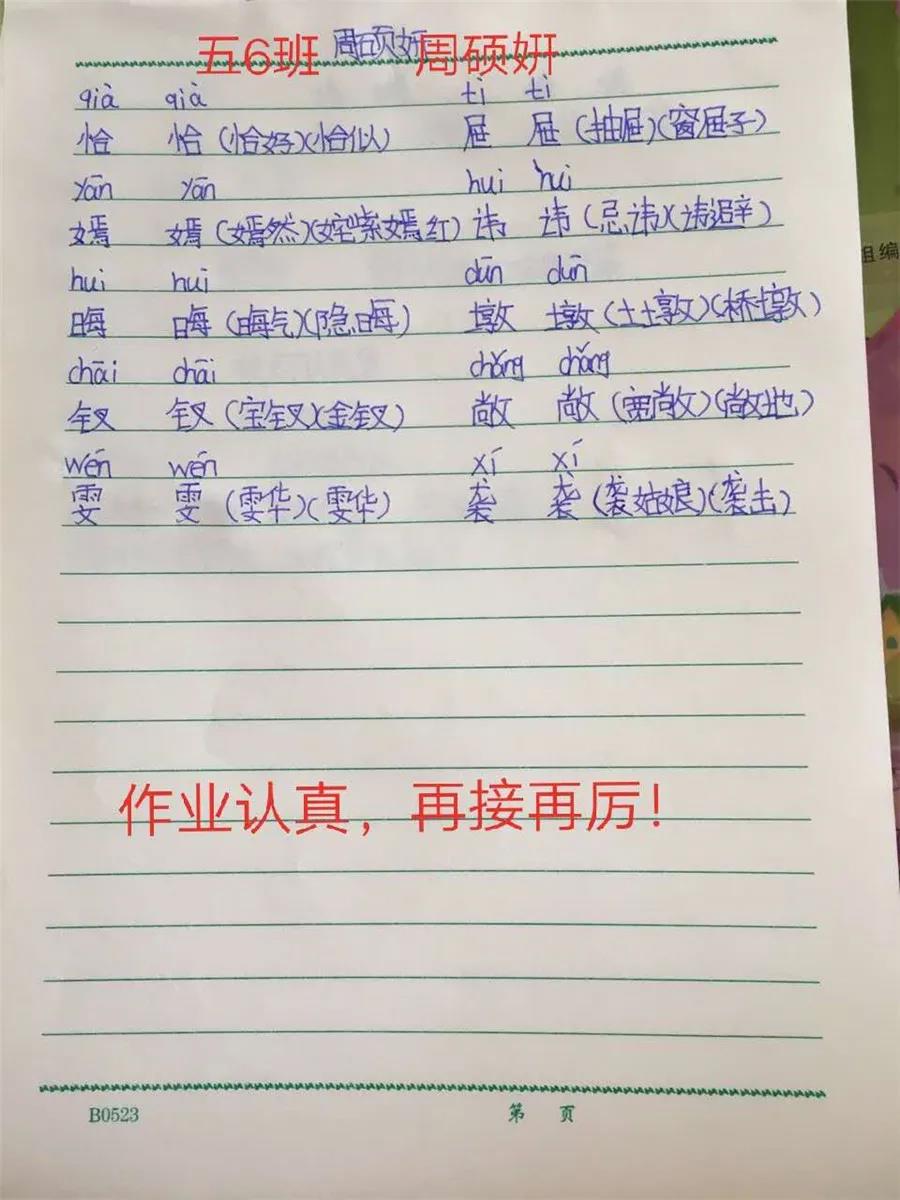 五6班 周硕妍 周硕妍
qià qià tì tì
恰 恰(恰好)(恰似) 屉 屉(抽屉)(窗屉子)
yān yān huì huì
嫣 嫣(嫣然)(姹紫嫣红) 讳 讳(忌讳)(讳避)
huì huì dūn dūn
晦 晦(晦气)(隐晦) 墩 墩(土墩)(桥墩)
chāi chāi chǎng chǎng
钗 钗(宝钗)(金钗) 敞 敞(宽敞)(敞地)
wén wén xí xí
雯 雯(雯华)(雯华) 袭 袭(袭姑娘)(袭击)
组编
作业认真，再接再厉！
B0523 第 页